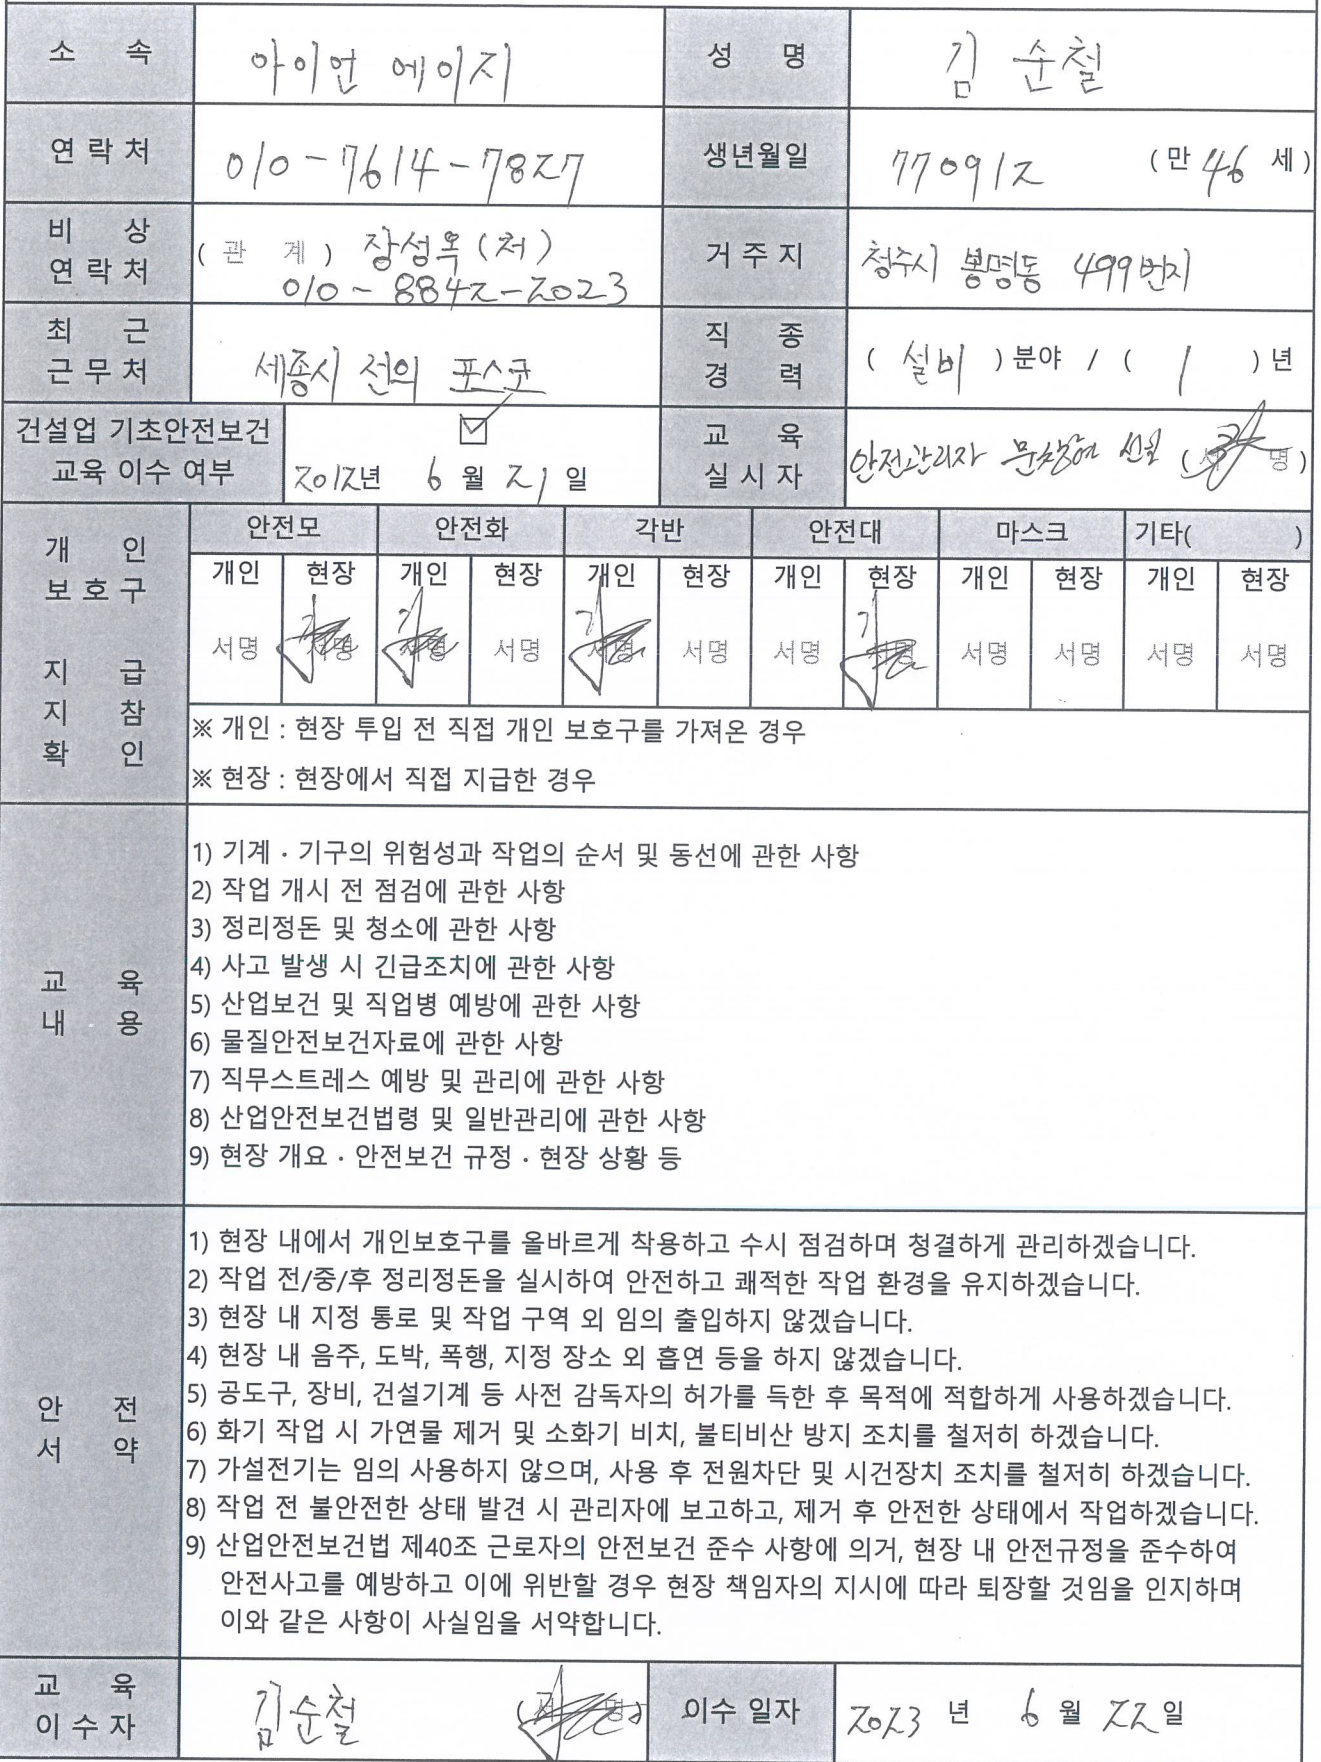 소 속 아이언 에이지 성 명 김 순철
연 락 처 010-7614-7827 생년월일 770912 ( 만 46 세 )
비 상
연 락 처
( 관 계 ) 장성옥 (처)
010-8842-2023
거 주 지 청주시 봉명동 499번지
최 근
근 무 처
세종시 전의 포스코
직 종
경 력
( 설비 ) 분야 / ( 1 ) 년
건설업 기초안전보건
교육 이수 여부
☑
2012년 6 월 21 일
교 육
실 시 자
안전관리자 ( 서 명 )
개 인
보 호 구
지 급
지 참
확 인
안전모 안전화 각반 안전대 마스크 기타( )
개인 현장 개인 현장 개인 현장 개인 현장 개인 현장 개인 현장
서명 서명 서명 서명 서명 서명 서명 서명 서명 서명 서명 서명
※ 개인 : 현장 투입 전 직접 개인 보호구를 가져온 경우
※ 현장 : 현장에서 직접 지급한 경우
교 육
내 용
1) 기계 · 기구의 위험성과 작업의 순서 및 동선에 관한 사항
2) 작업 개시 전 점검에 관한 사항
3) 정리정돈 및 청소에 관한 사항
4) 사고 발생 시 긴급조치에 관한 사항
5) 산업보건 및 직업병 예방에 관한 사항
6) 물질안전보건자료에 관한 사항
7) 직무스트레스 예방 및 관리에 관한 사항
8) 산업안전보건법령 및 일반관리에 관한 사항
9) 현장 개요 · 안전보건 규정 · 현장 상황 등
안 전
서 약
1) 현장 내에서 개인보호구를 올바르게 착용하고 수시 점검하며 청결하게 관리하겠습니다.
2) 작업 전/중/후 정리정돈을 실시하여 안전하고 쾌적한 작업 환경을 유지하겠습니다.
3) 현장 내 지정 통로 및 작업 구역 외 임의 출입하지 않겠습니다.
4) 현장 내 음주, 도박, 폭행, 지정 장소 외 흡연 등을 하지 않겠습니다.
5) 공도구, 장비, 건설기계 등 사전 감독자의 허가를 득한 후 목적에 적합하게 사용하겠습니다.
6) 화기 작업 시 가연물 제거 및 소화기 비치, 불티비산 방지 조치를 철저히 하겠습니다.
7) 가설전기는 임의 사용하지 않으며, 사용 후 전원차단 및 시건장치 조치를 철저히 하겠습니다.
8) 작업 전 불안전한 상태 발견 시 관리자에 보고하고, 제거 후 안전한 상태에서 작업하겠습니다.
9) 산업안전보건법 제40조 근로자의 안전보건 준수 사항에 의거, 현장 내 안전규정을 준수하여
안전사고를 예방하고 이에 위반할 경우 현장 책임자의 지시에 따라 퇴장할 것임을 인지하며
이와 같은 사항이 사실임을 서약합니다.
교 육
이 수 자
김순철 ( 서 명 ) 이수 일자 2023 년 6 월 22 일